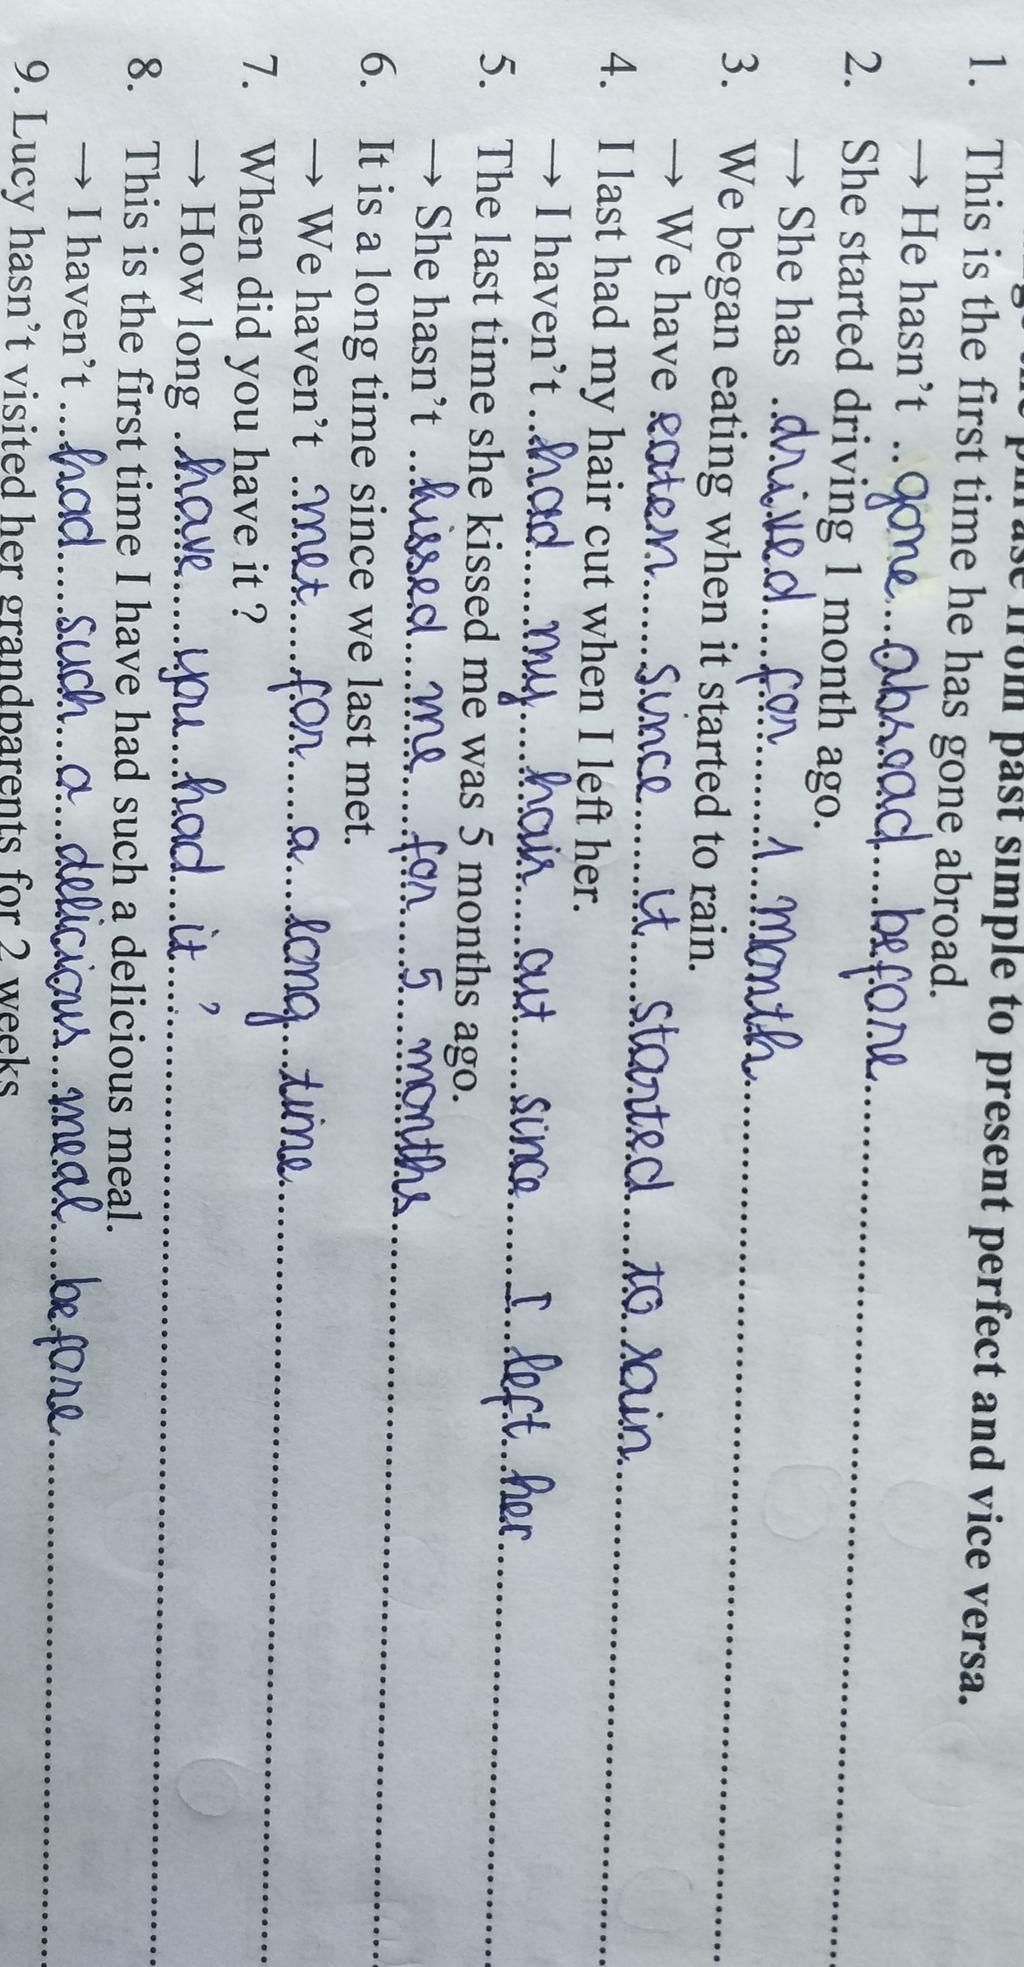 past simple to present perfect and vice versa.
1. This is the first time he has gone abroad.
→ He hasn't gone abroad before
2. She started driving 1 month ago.
→ She has drived for 1 month
3. We began eating when it started to rain.
→ We have eaten since it started to rain
4. I last had my hair cut when I left her.
→ I haven't had my hair cut since I left her
5. The last time she kissed me was 5 months ago.
→ She hasn't kissed me for 5 months
6. It is a long time since we last met.
→ We haven't met for a long time
7. When did you have it ?
→ How long have you had it ?
8. This is the first time I have had such a delicious meal.
→ I haven't had such a delicious meal before
9. Lucy hasn't visited her grandparents for 2 weeks